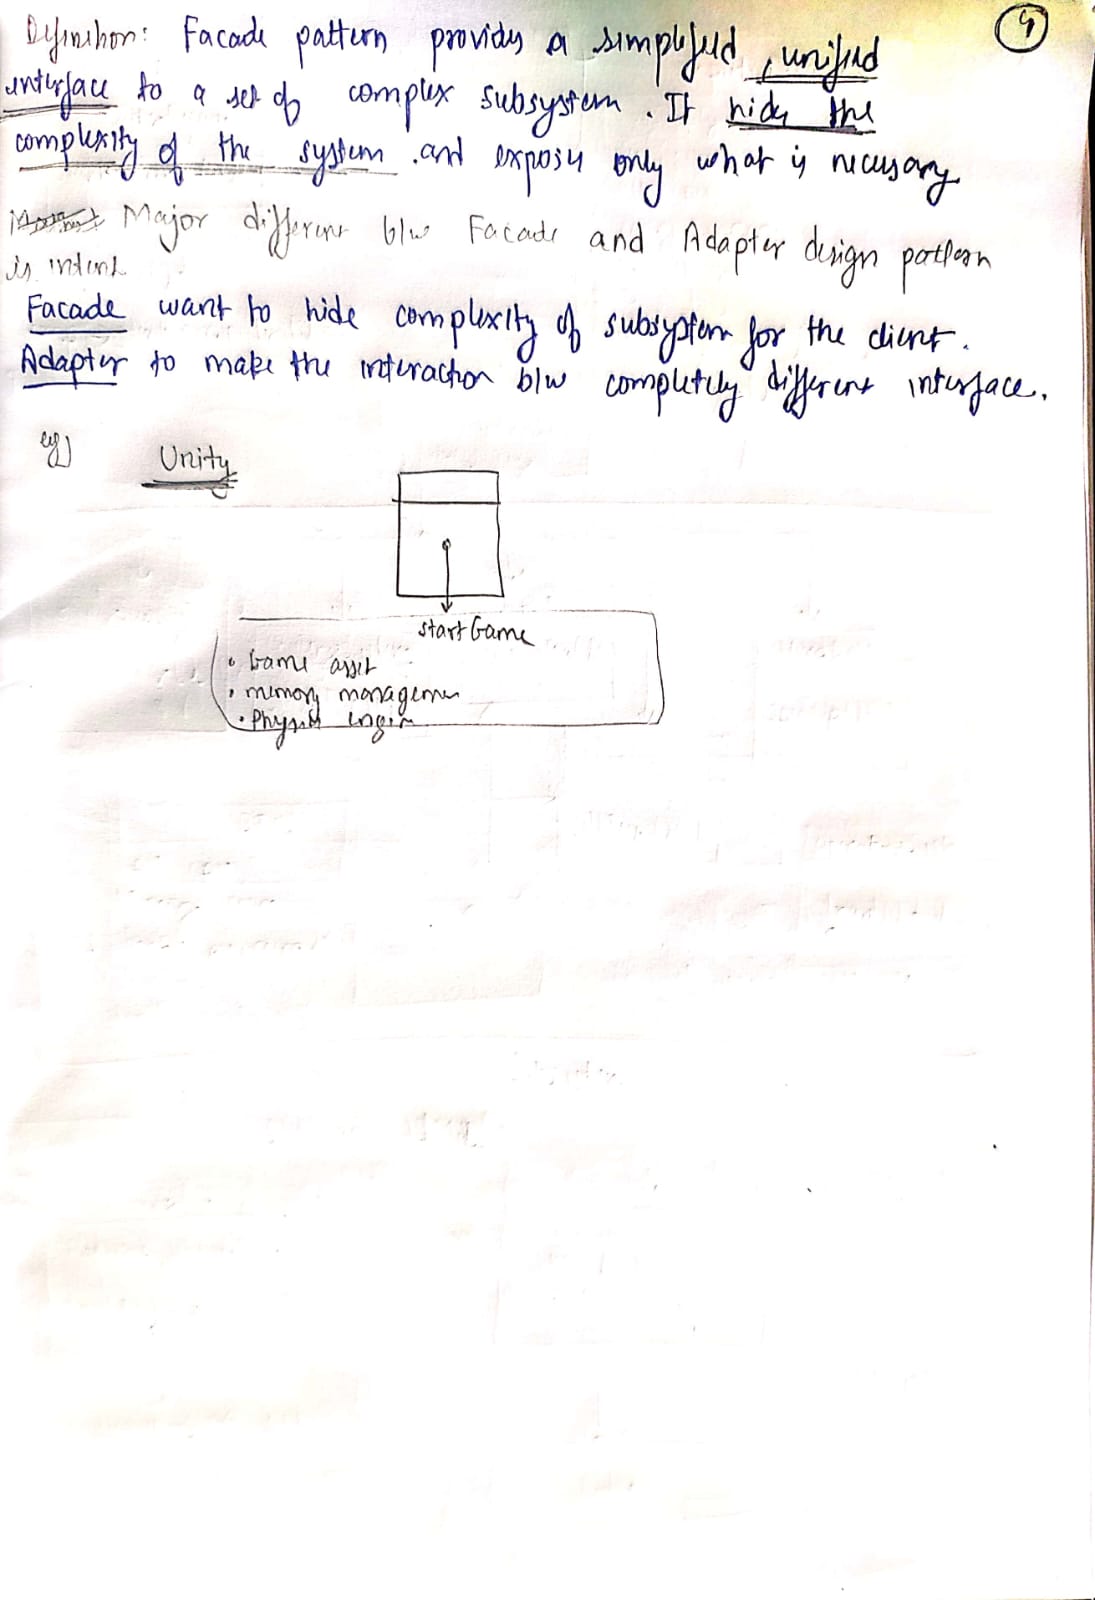 4
Definition: Facade pattern provides a simplified, unified
interface to a set of complex subsystem. It hides the
complexity of the system and exposes only what is necessary
Major different b/w Facade and Adapter design pattern
is intent
Facade want to hide complexity of subsystem for the client.
Adapter to make the interaction b/w completely different interface.
eg)
Unity
startGame
• Game asset
• memory managemen
• Physics Engin